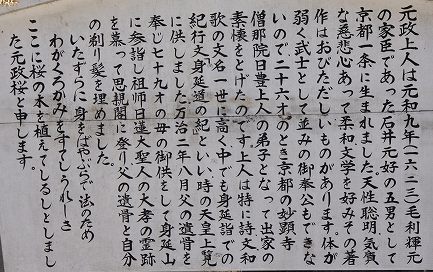 元政上人は元和九年（一六二三）毛利輝元
の家臣であった石井元好の五男として
京都一条に生まれました。天性聡明、気質
な慈悲心あって柔和、文学を好みその著
作はおびただしいものがあります。体が
弱く武士として並みの御奉公もできな
いので二十六才のとき京都の妙顕寺
僧那院日豊上人の弟子となって出家の
素懐をとげたのです。上人は特に詩文和
歌の文名一世に高く中でも身延詣での
紀行文身延道の紀といい時の天皇上覧
に供しました。万治二年八月父の遺骨を
奉じ七十九才の母の御供をして身延山
に参詣し祖師日蓮大聖人の大孝の霊跡
を慕って思親閣に登り父の遺骨と自分
の剃り髪を埋めました。
いたずらに身をばやぶらで法のため
わがくろかみをすてしうれしさ
ここに桜の木を植えてしるしとしまし
た元政桜と申します。